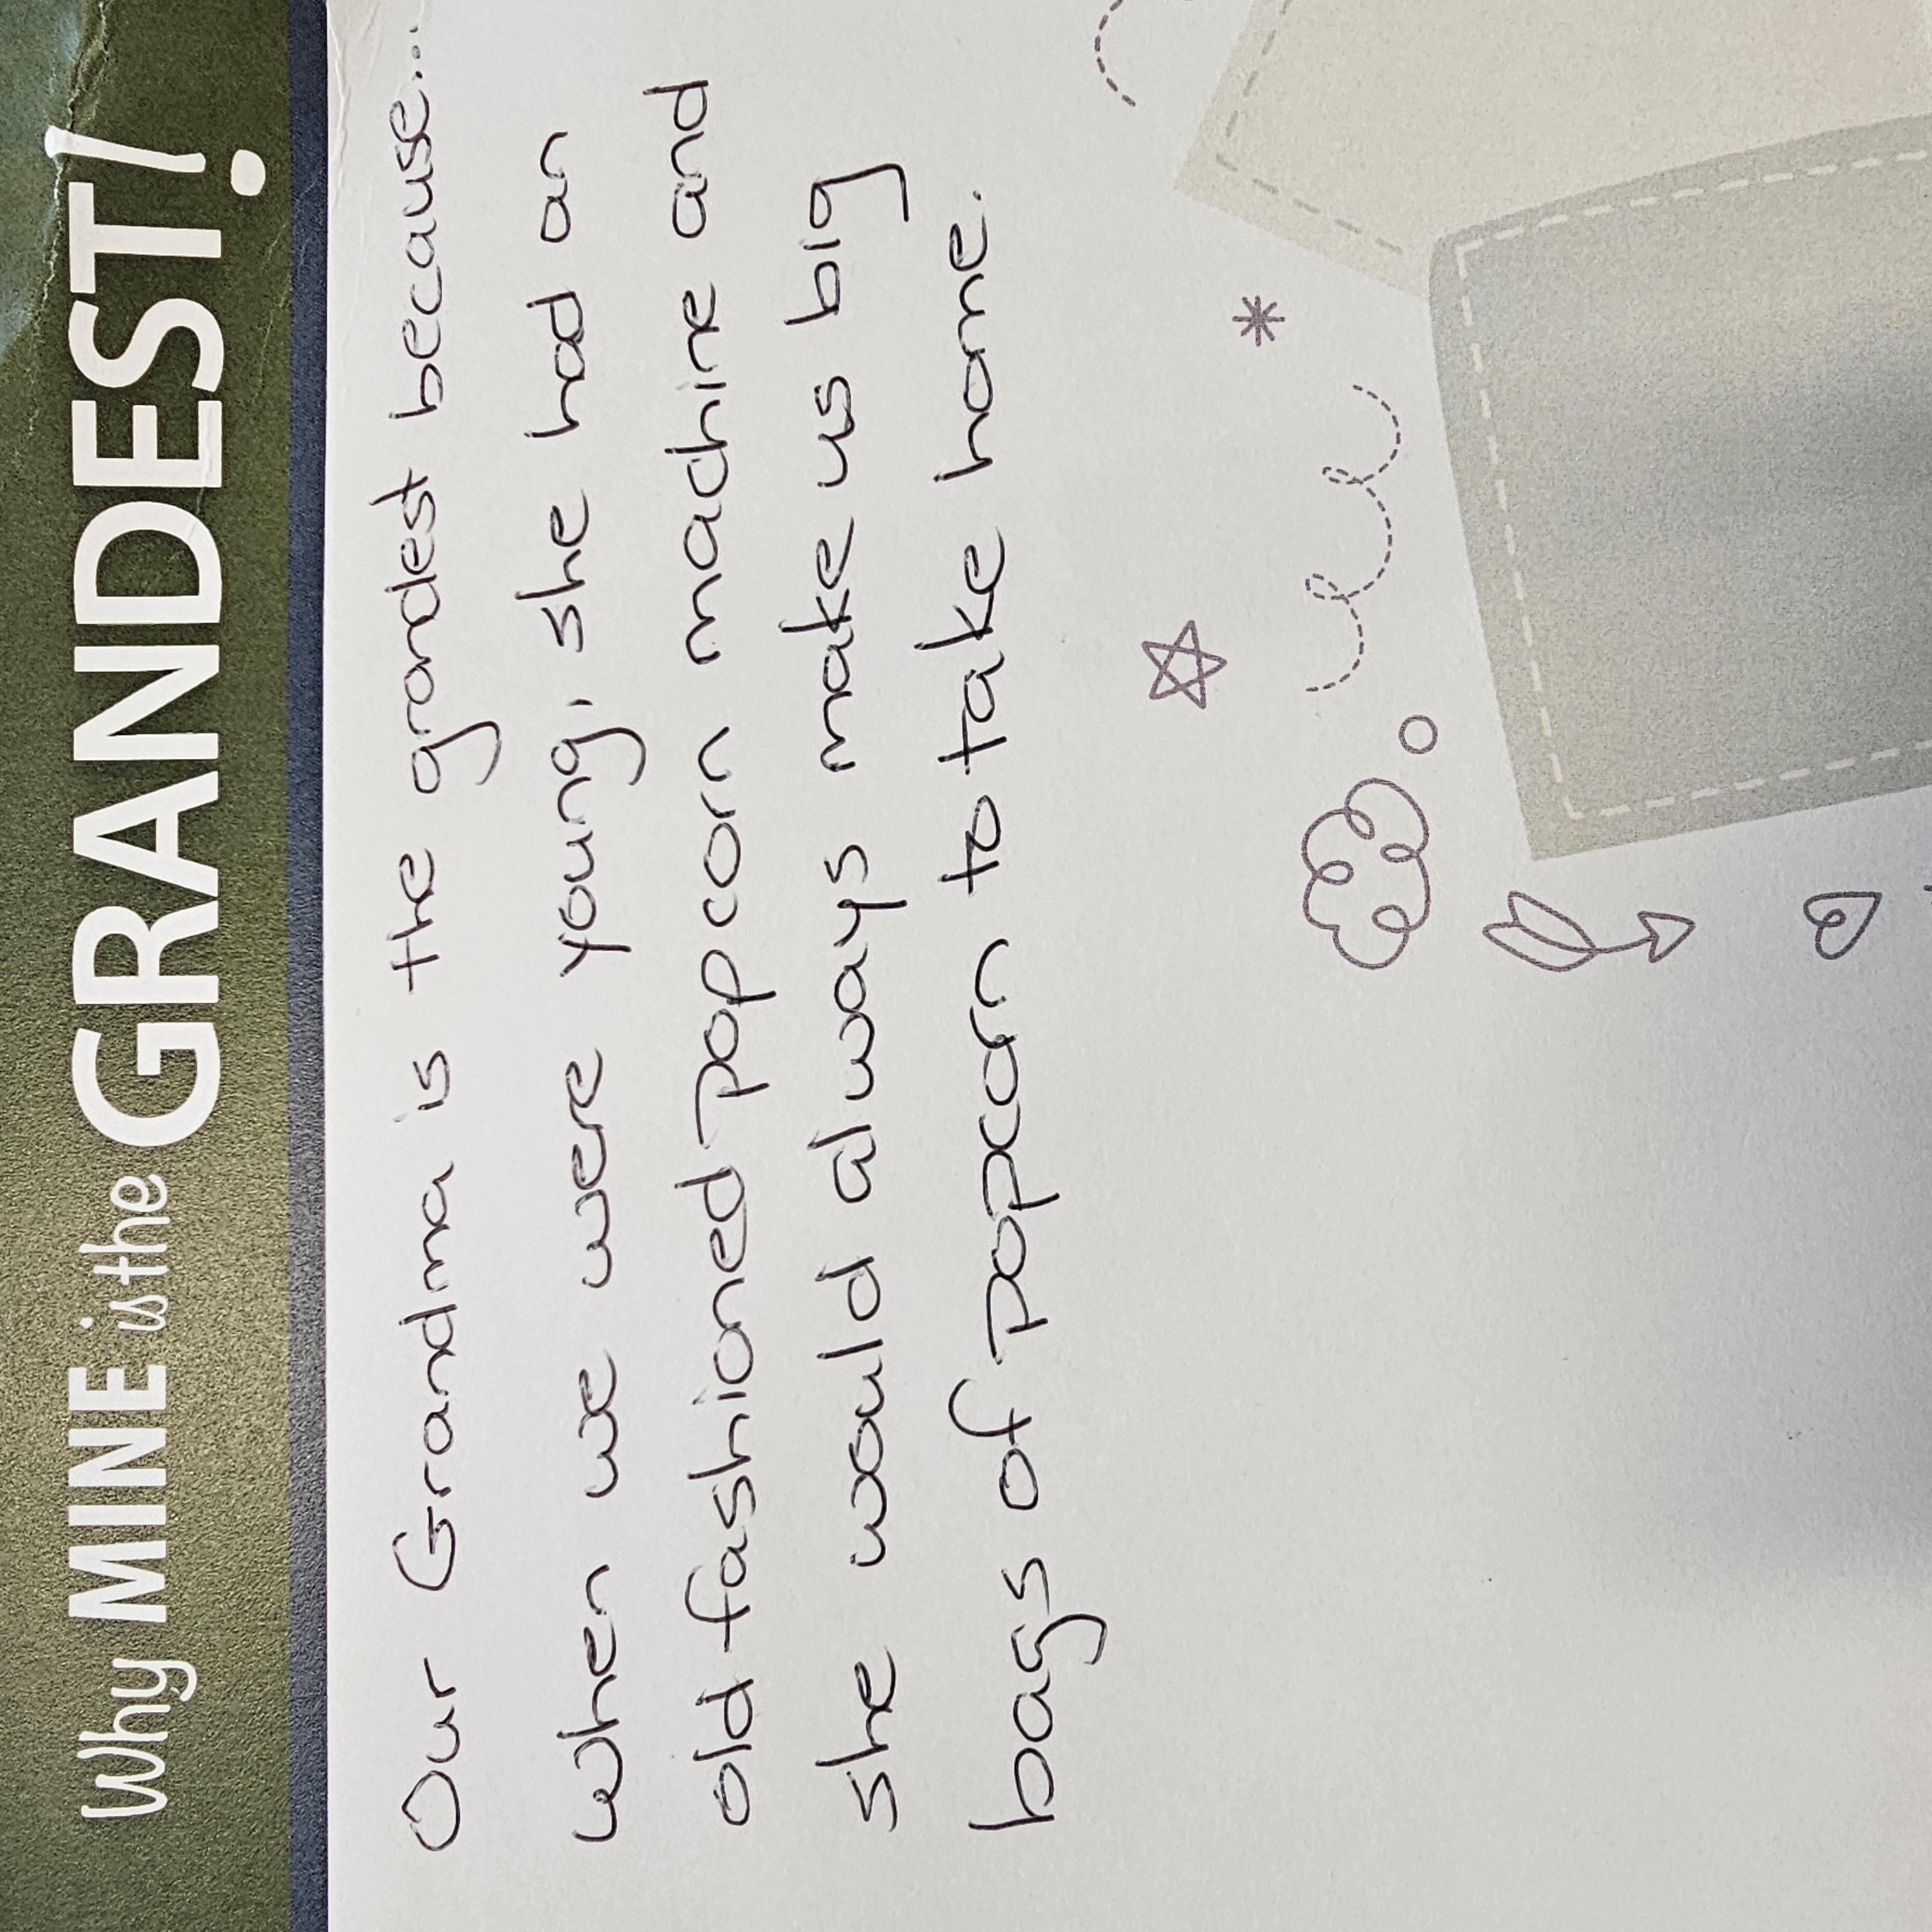 Why MINE is the GRANDEST!
Our Grandma is the grandest because...
when we were young, she had an
old fashioned popcorn machine and
she would always make us big
bags of popcorn to take home.